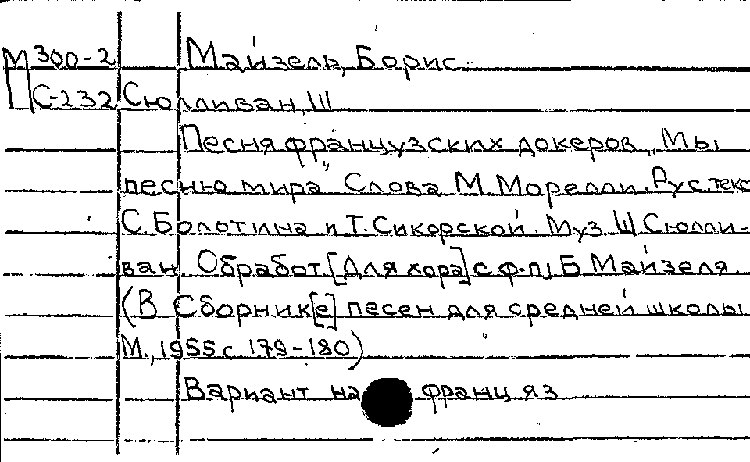 М 300-2 Майзель, Борис.
С-232 Сюлливан, Ш
Песня французских докеров „Мы
песню мира". Слова М. Морелли. Рус. текс
С. Болотина и Т. Сикорской. Муз. Ш. Сюлли-
ван. Обработ. [Для хора] с ф-п Б. Майзеля.
(В Сборник[е] песен для средней школы
М., 1955 с. 179-180)
Вариант на франц яз